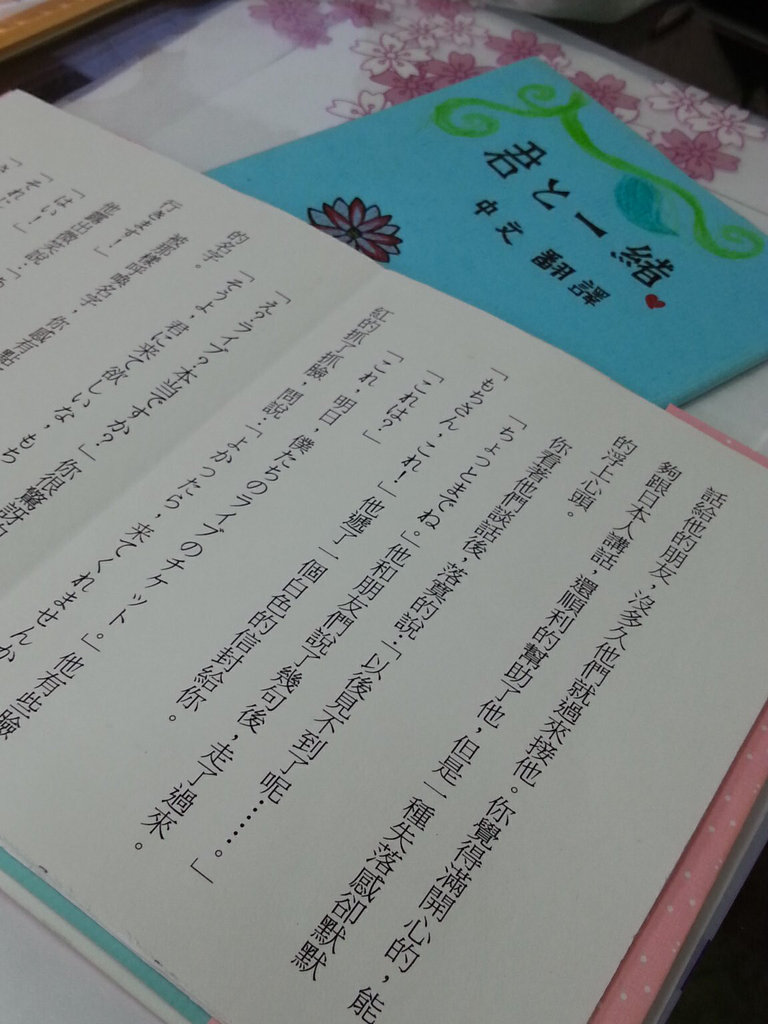 話給他的朋友,沒多久他們就過來接他。你覺得滿開心的,能
夠跟日本人講話,還順利的幫助了他,但是一種失落感卻默默
的浮上心頭。
你看著他們談話後,落寞的說:「以後見不到了呢……。」
「ちょっとまでね。」他和朋友們說了幾句後,走了過來。
「もちさん,これ!」他遞了一個白色的信封給你。
「これは?」
「これ,明日,僕たちのライブのチケット。」他有些臉
紅的抓了抓臉,問說:「よかったら,来てくれませんか
「え?ライブ?本当ですか?」你很驚訝
「そうよ,君に来て欲しいな,もち
的名字。
被那樣呼喚名字,你感有點
行きます!」
他露出微笑說:「
「はい!」
「それに
君へ一緒
中文翻譯